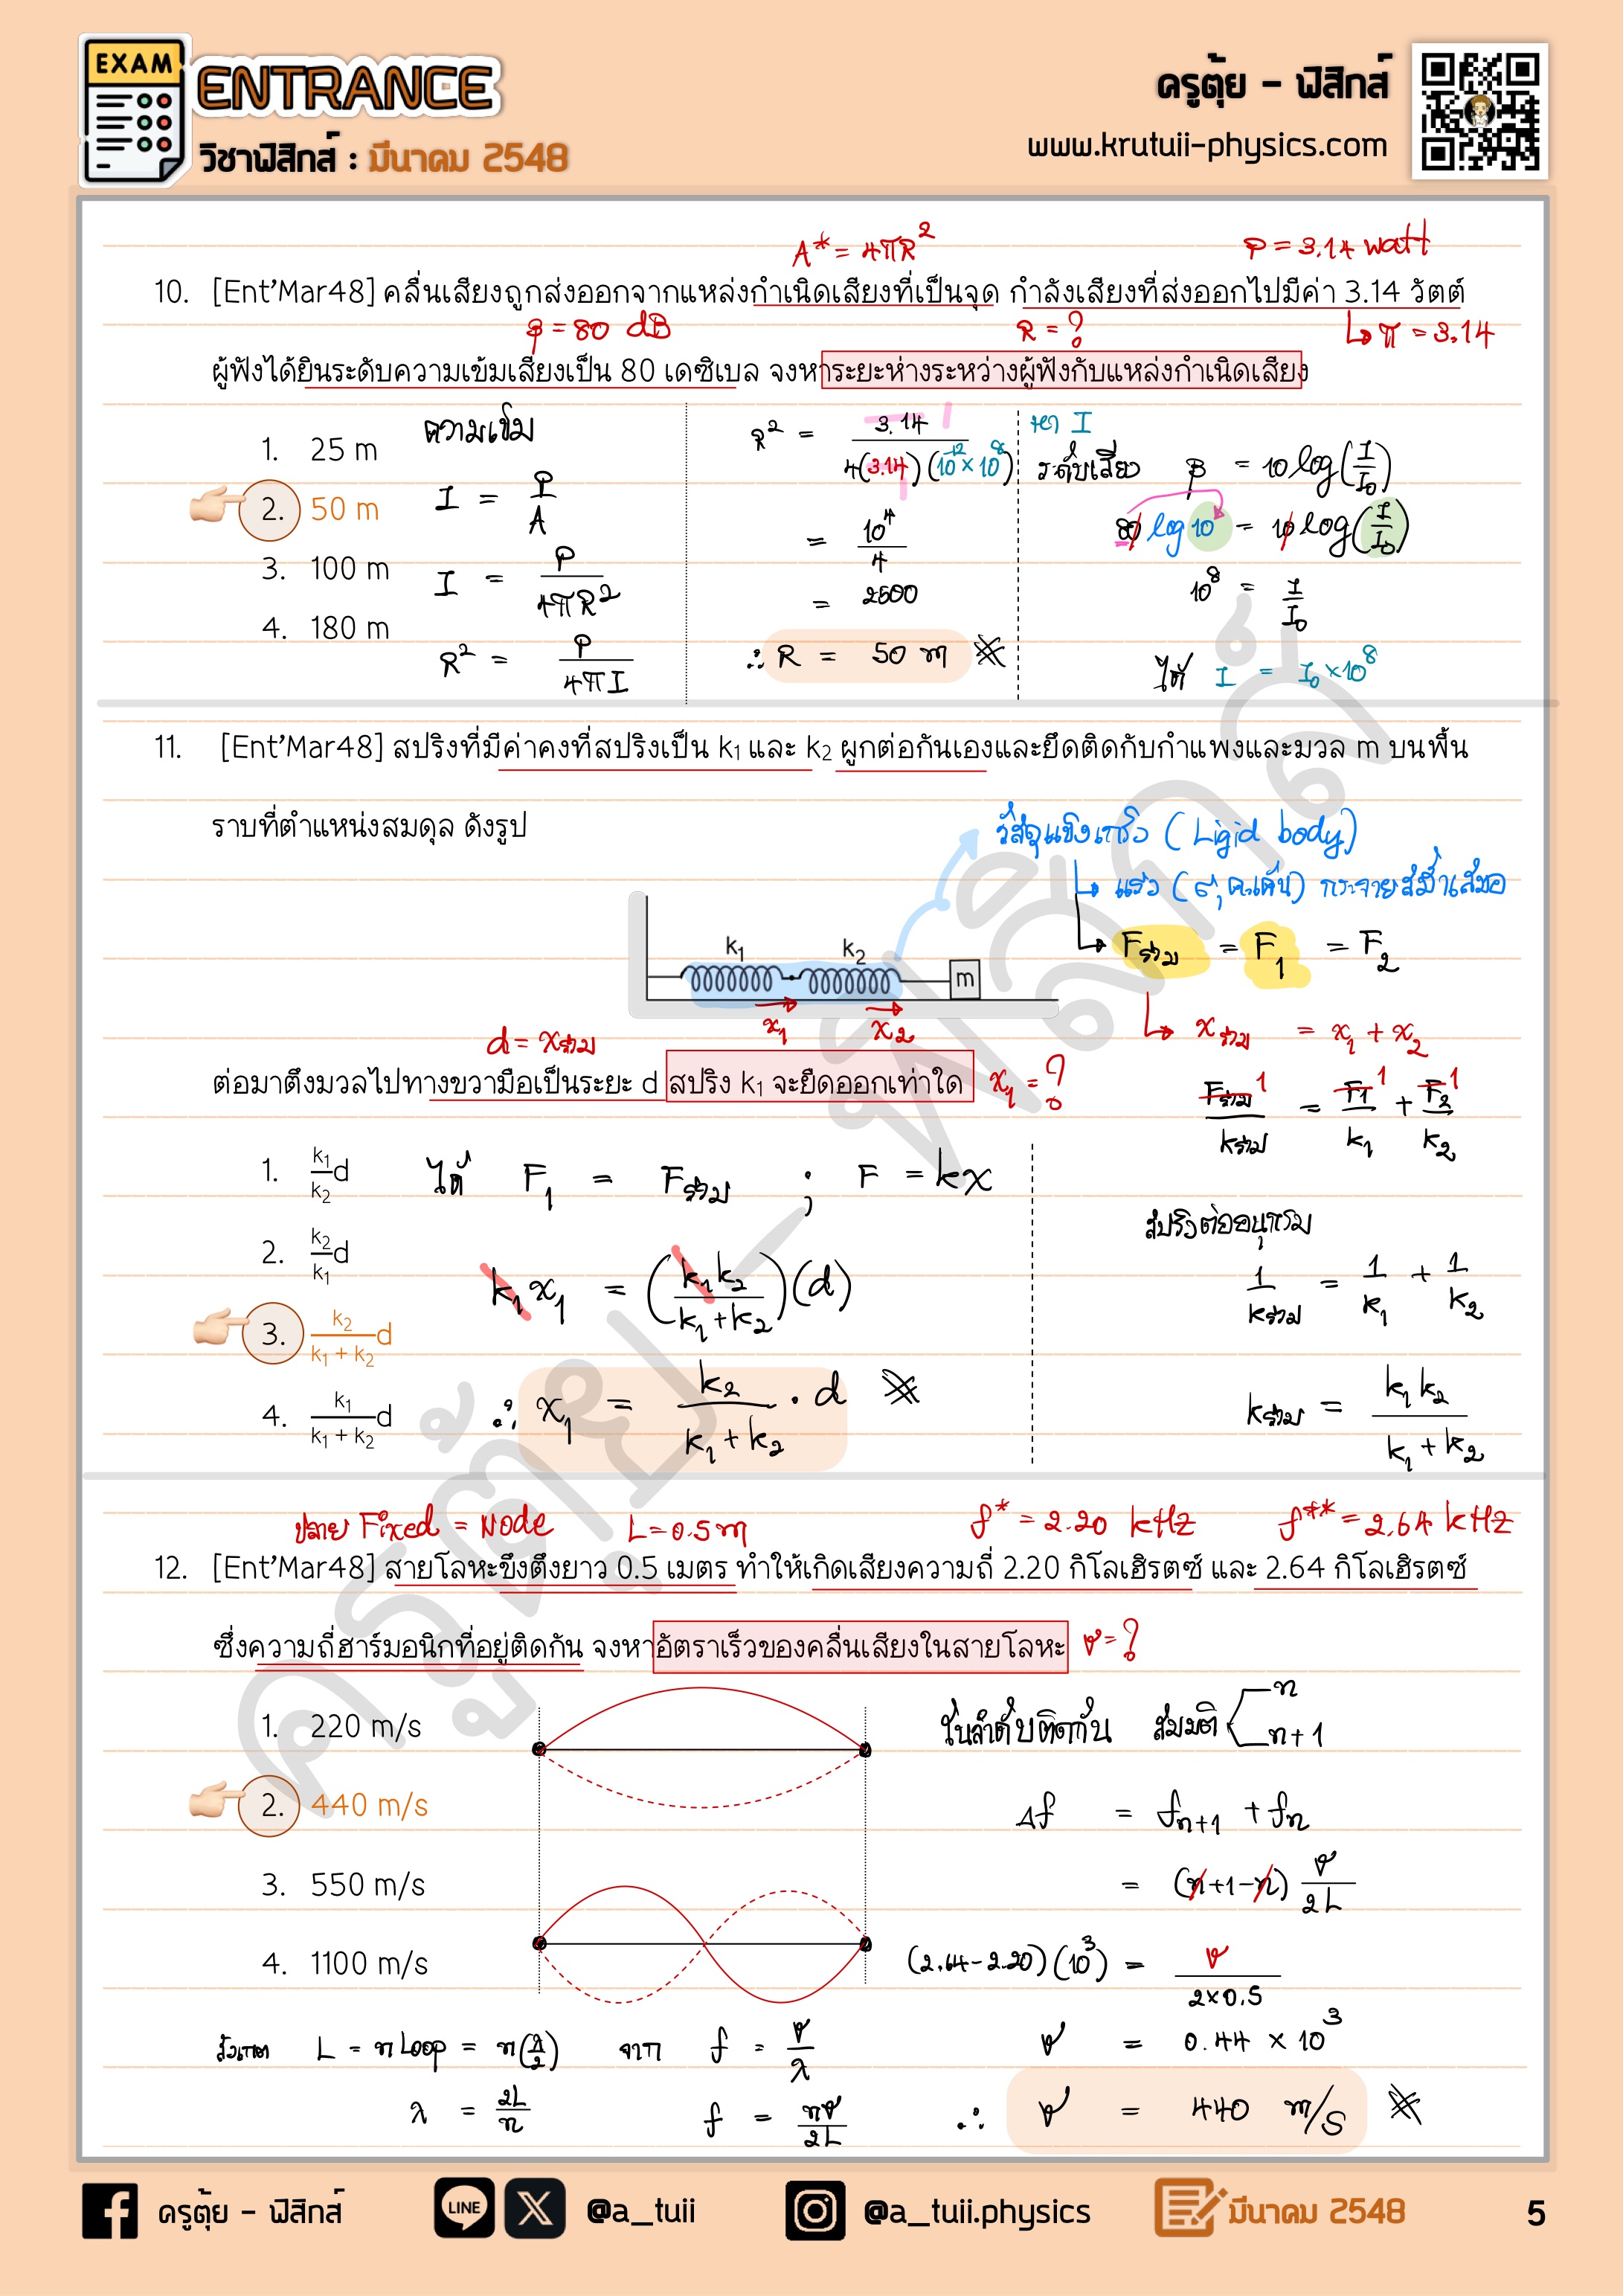 EXAM
ENTRANCE
วิชาฟิสิกส์ : มีนาคม 2548
ครูตุ้ย - ฟิสิกส์
www.krutuii-physics.com
A* = 4πR²
P = 3.14 watt
10. [Ent'Mar48] คลื่นเสียงถูกส่งออกจากแหล่งกำเนิดเสียงที่เป็นจุด กำลังเสียงที่ส่งออกไปมีค่า 3.14 วัตต์
β = 80 dB
R = ?
↳ π = 3.14
ผู้ฟังได้ยินระดับความเข้มเสียงเป็น 80 เดซิเบล จงหาระยะห่างระหว่างผู้ฟังกับแหล่งกำเนิดเสียง
1. 25 m
2. 50 m
3. 100 m
4. 180 m
ความเข้ม
I = P/A
I = P/4πR²
R² = P/4πI
R² = 3.14 / 4(3.14)(10⁻¹² × 10⁸)
1
1
= 10⁴/4
= 2500
∴ R = 50 m
หา I
ระดับเสียง β = 10 log(I/I₀)
80 log 10 = 10 log(I/I₀)
10⁸ = I/I₀
ได้ I = I₀ × 10⁸
11. [Ent'Mar48] สปริงที่มีค่าคงที่สปริงเป็น k₁ และ k₂ ผูกต่อกันเองและยึดติดกับกำแพงและมวล m บนพื้น
ราบที่ตำแหน่งสมดุล ดังรูป
วัสดุแข็งเกร็ง (Ligid body)
↳ แรง (ๆ ค.เค้น) กระจายสม่ำเสมอ
↳ Fรวม = F₁ = F₂
k₁ k₂ m
x₁ x₂
↳ xรวม = x₁ + x₂
d = xรวม
ต่อมาดึงมวลไปทางขวามือเป็นระยะ d สปริง k₁ จะยืดออกเท่าใด
x₁ = ?
Fรวม/kรวม = F₁/k₁ + F₂/k₂
1 1 1
1. k₁/k₂ d
2. k₂/k₁ d
3. k₂/k₁ + k₂ d
4. k₁/k₁ + k₂ d
ได้ F₁ = Fรวม ; F = kx
k₁x₁ = (k₁k₂/k₁+k₂)(d)
∴ x₁ = k₂/k₁+k₂ · d
สปริงต่ออนุกรม
1/kรวม = 1/k₁ + 1/k₂
kรวม = k₁k₂/k₁+k₂
ปลาย Fixed = Node
L = 0.5 m
f* = 2.20 kHz
f** = 2.64 kHz
12. [Ent'Mar48] สายโลหะขึงตึงยาว 0.5 เมตร ทำให้เกิดเสียงความถี่ 2.20 กิโลเฮิรตซ์ และ 2.64 กิโลเฮิรตซ์
ซึ่งความถี่ฮาร์มอนิกที่อยู่ติดกัน จงหาอัตราเร็วของคลื่นเสียงในสายโลหะ
v = ?
1. 220 m/s
2. 440 m/s
3. 550 m/s
4. 1100 m/s
ในลำดับติดกัน สมมติ n
n+1
Δf = fₙ₊₁ + fₙ
= (n+1-n) v/2L
(2.64-2.20)(10³) = v/2×0.5
v = 0.44 × 10³
∴ v = 440 m/s
สังเกต L = n Loop = n(λ/2)
λ = 2L/n
จาก f = v/λ
f = nv/2L
ครูตุ้ย - ฟิสิกส์
ครูตุ้ย - ฟิสิกส์
LINE
@a_tuii
@a_tuii.physics
มีนาคม 2548
5